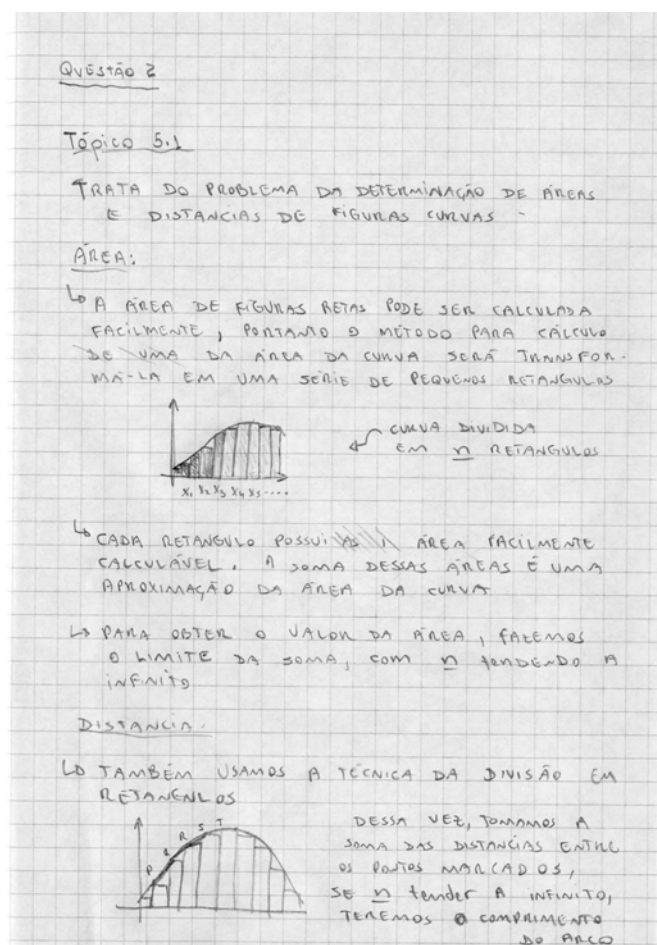 QUESTÃO 2
Tópico 5.1
TRATA DO PROBLEMA DA DETERMINAÇÃO DE ÁREAS
E DISTANCIAS DE FIGURAS CURVAS -
ÁREA:
A ÁREA DE FIGURAS RETAS PODE SER CALCULADA
FACILMENTE, PORTANTO O MÉTODO PARA CÁLCULO
DE UMA DA ÁREA DA CURVA SERÁ TRANSFOR-
MÁ-LA EM UMA SÉRIE DE PEQUENOS RETANGULOS
CURVA DIVIDIDA
EM n RETANGULOS
X₁ X₂ X₃ X₄ X₅ .....
CADA RETANGULO POSSUI ÁREA FACILMENTE
CALCULÁVEL. A SOMA DESSAS ÁREAS É UMA
APROXIMAÇÃO DA ÁREA DA CURVA
PARA OBTER O VALOR DA ÁREA, FAZEMOS
O LIMITE DA SOMA, COM n tENDENDO A
INFINITO
DISTANCIA.
TAMBÉM USAMOS A TÉCNICA DA DIVISÃO EM
RETANGNLOS
P Q R S T
DESSA VEZ, TOMAMOS A
SOMA DAS DISTANCIAS ENTRE
OS PONTOS MARCADOS,
SE n tender A INFINITO,
TEREMOS O COMPRIMENTO
DO ARCO